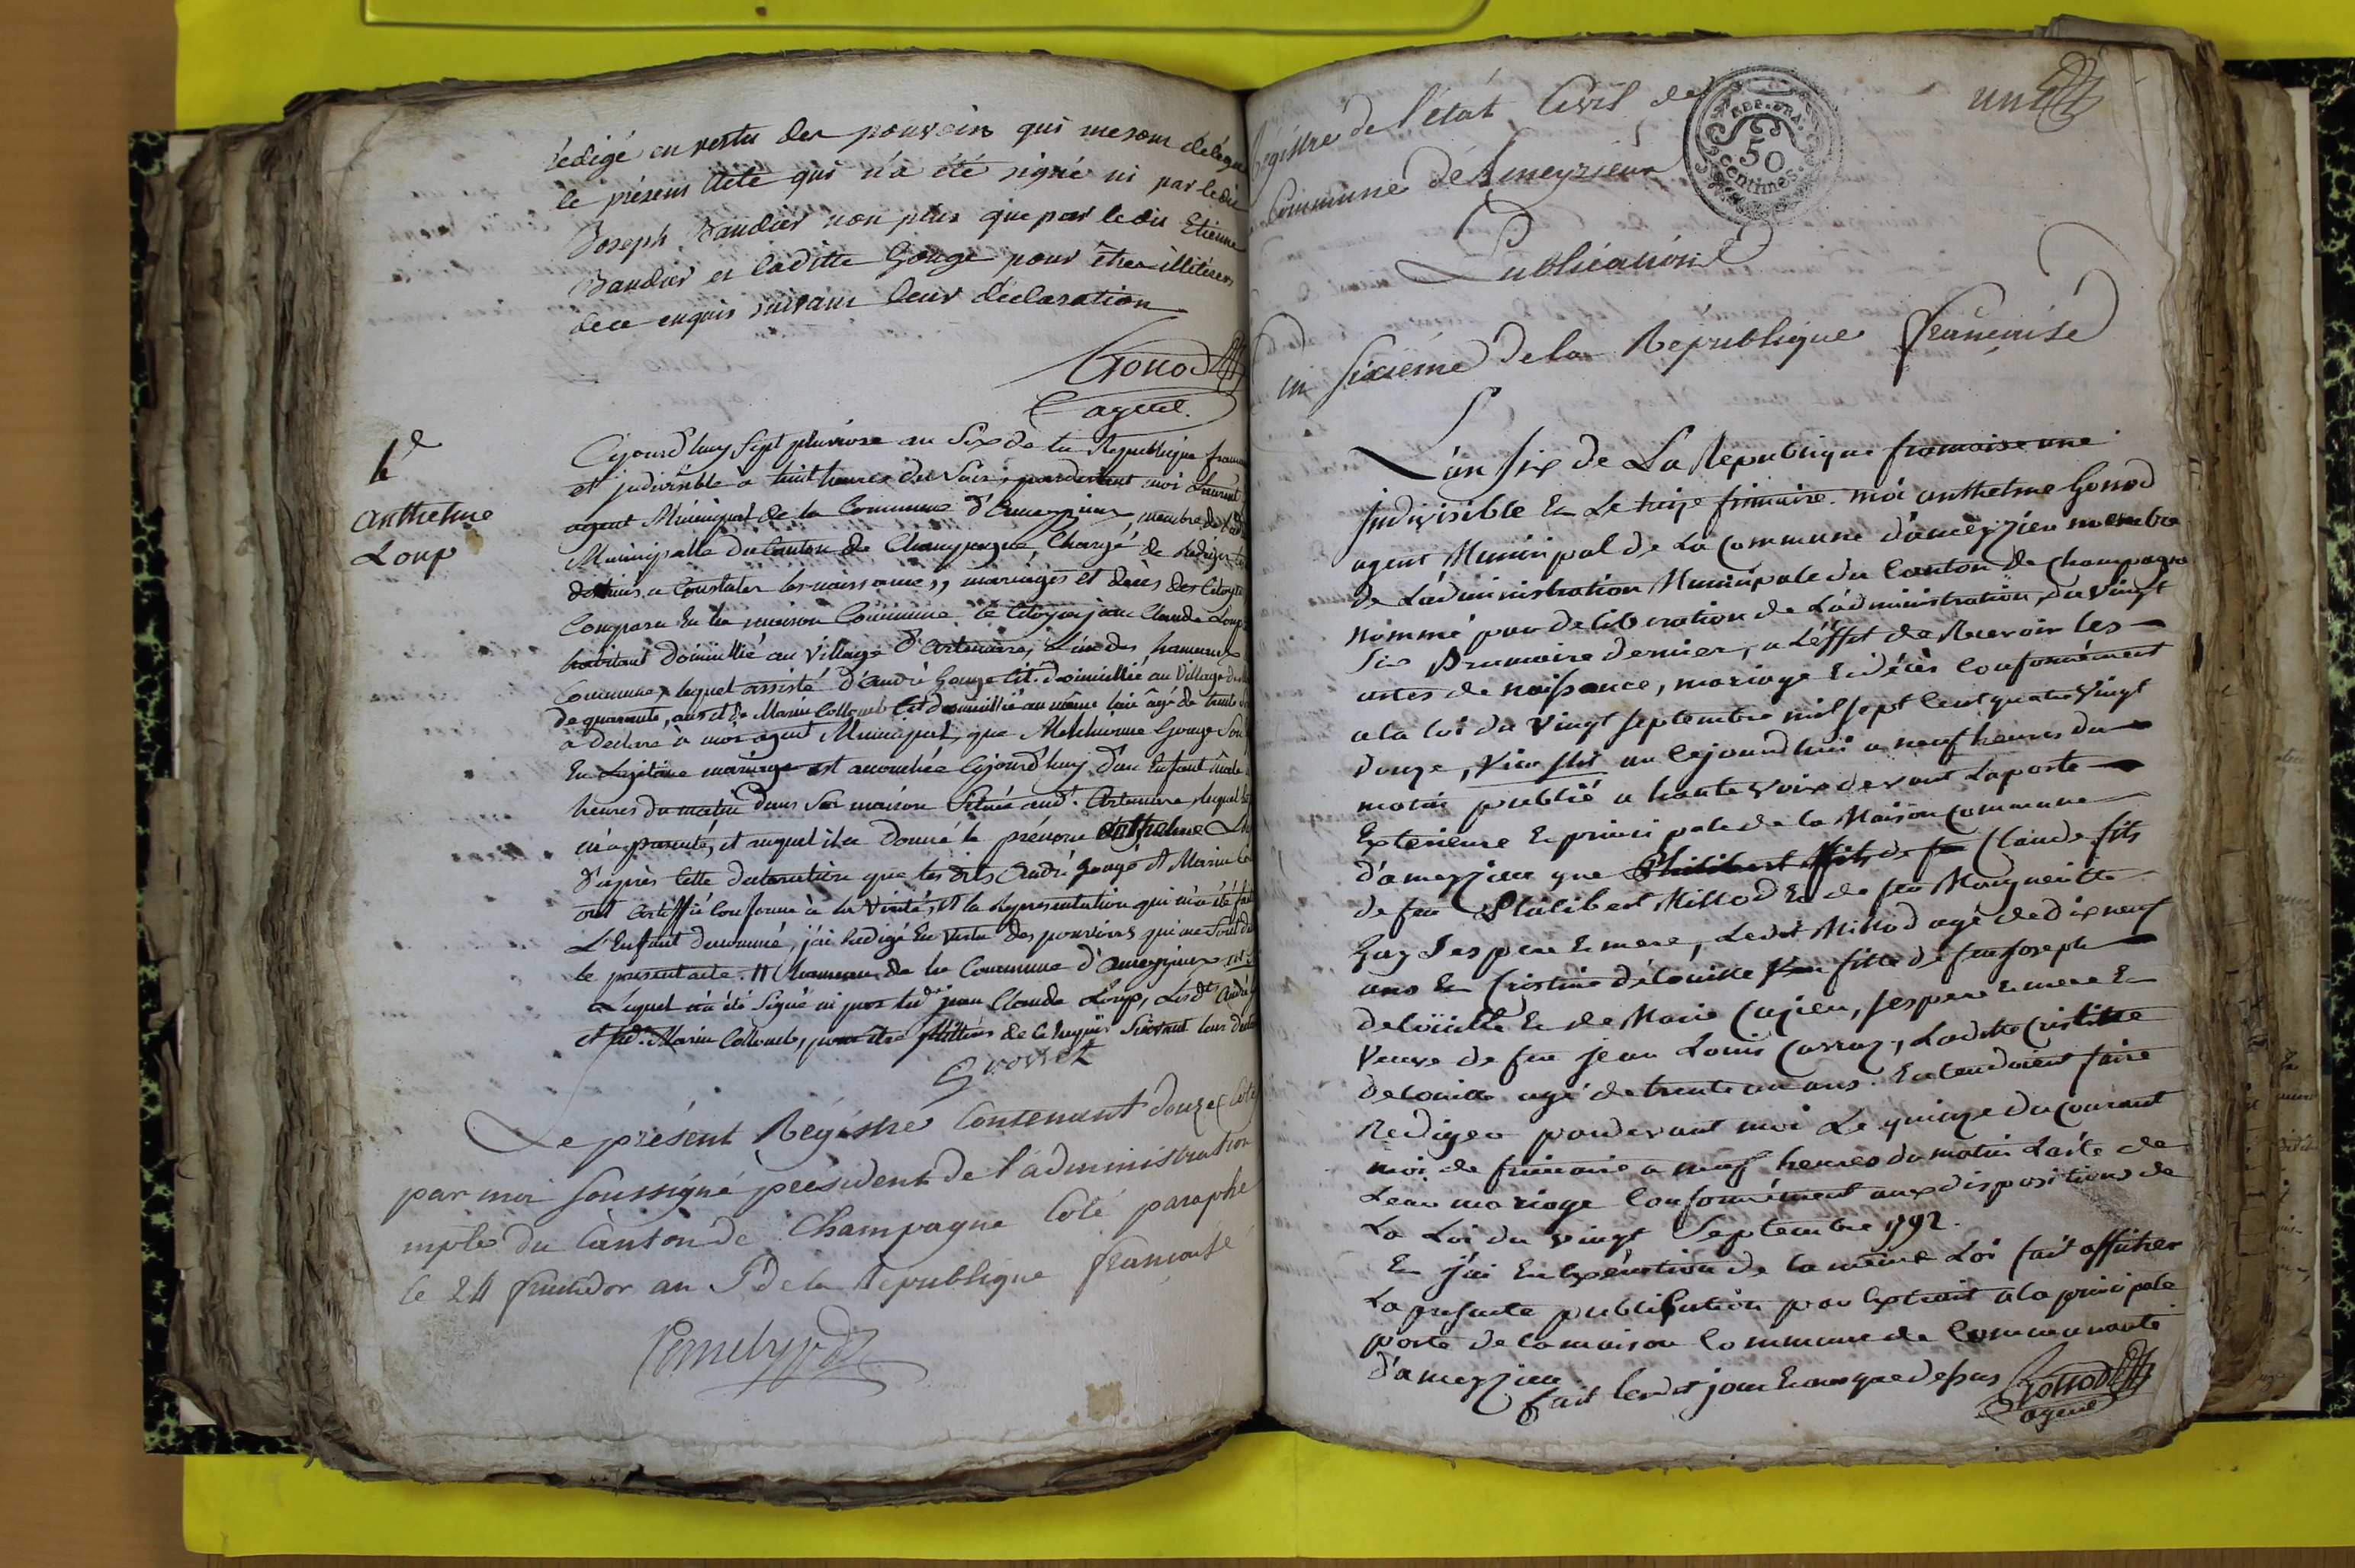 rédigé en vertu des pouvoirs qui me sont délégué
le présent Acte qui n'a été signé ni par ledit
Joseph Baudier non plus que par ledit Etienne
Baudier et laditte Gonge pour être illiteres
de ce enquis suivant leur déclaration
Gonod
agent.
Anthelme
Loup
Cejourd'huy sept pluviose an Six de la République
et indivisible à huit heures du Soir, pardevant moi
agent Municipal de la Commune d'Ameyzieux, membre de
Municipalle du Canton de Champagne, Chargé de Rédiger
destinés a Constater les naissances, mariages et décès des Citoyens
Comparu En la maison Commune le Citoyen jean Claude Loup
habitant domicillié au Village d'Artemare, L'un des hameaux
Commune, lequel assisté d'André Gonge Cit. domicillié au Village
de quarante, ans et de Marin Collomb Cit domicillié au même lieu âgé de trente
a déclaré à moi agent Municipal, que Melchionne Gonge Son
En Legitime mariage est accouchée Cejourd'huy d'un Enfant mâle
heures du matin dans Sa maison Située aud. Artemare, lequel
m'a presenté, et auquel il a Donné le prénom Anthelme
D'après Cette declaration que les dits André Gonge et Marin
ont Certiffié Conforme à la Vérité, et la Representation qui m'a été
L'Enfant denommé, j'ai Redigé En Vertu des pouvoirs qui me Sont
le present acte. Hameau de la Commune d'Ameyzieux
Lequel n'a été Signé ni par led jean Claude Loup, Lesdt André
et led. Marin Collomb, pour être illitérés de ce Enquis Suivant leur
Grosset
Le présent Régistre Contenant douze
par moi soussigné président de l'administration
mple du Canton de Champagne Coté paraphé
le 24 fructidor an 5 de la République française
Registre de l'état Civil de
un
Commune de Ameyzieux
REP. FRA.
50
Centimes.
Publications
an sixieme de la République française
L'an six de La Republique francaise une
Indivisible Et Le treize frimaire. moi anthelme Gonod
agent Municipal de La Commune d'ameyzieu membre
de L'administration Municipale du Canton de Champagne
Nommé par deliberation de L'administration, du Vingt
Six Brumaire dernier, a L'effet de Recevoir les
actes de naissance, mariage Et décès Conformément
a la loi du Vingt septembre mil sept Cent quatre Vingt
douze, cejourdhui a neuf heures du
matin publié a haute Voix devant Laporte
Exterieure Et principale de la Maison Commune
d'ameyzieu que Philibert fils de feu Claude fils
de feu Philibert Millod Et de feu Margueritte
Guy Ses pere Et mere, Ledit Millod agé de dix neuf
ans Et Cristine délouille fille de feu Joseph
delouille Et de Marie Cujieu, ses pere Et mere Et
Veuve de feu jean Louis Carraz, Laditte Cristine
delouille agé de trente un ans. Entendoient faire
Rediger pardevant moi Le quinze du Courant
moi de frimaire a neuf heures du matin L'acte de
Leur mariage Conformément aux dispositions de
La Loi du vingt Septembre 1792.
Et j'ai En Exécution de la même Loi fait afficher
La presente publication par Extrait a la principale
porte de la maison Commune de Communauté
d'ameyzieu
fait lesdit jour Et an que dessus
Gonod
agent